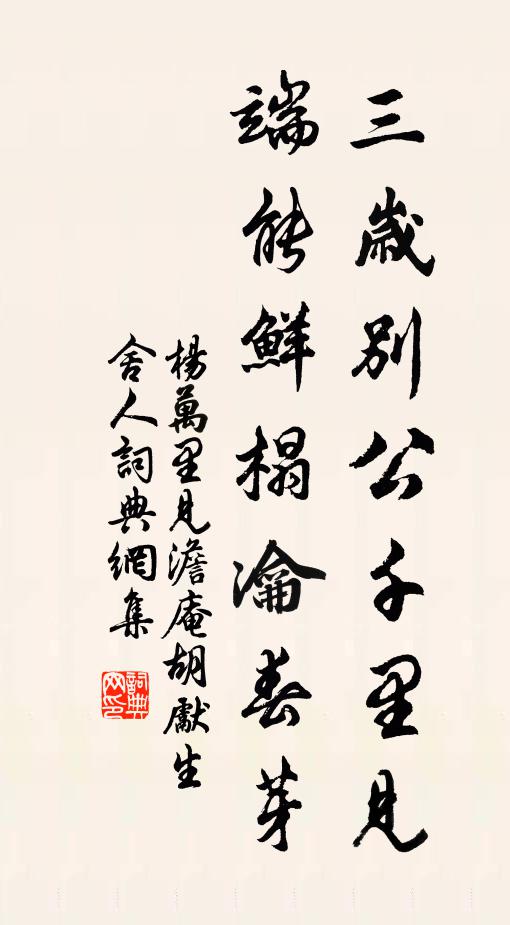 三歲別公千里見
端能鮮榻瀹春芽
楊萬里見澹庵胡獻生
舍人詞典網集
詞典網印